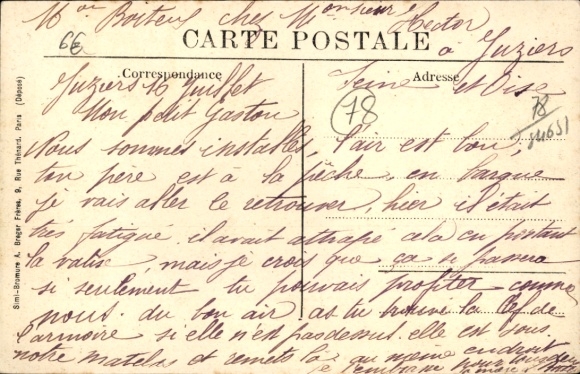 Mme Boiteux chez Monsieur Hector
à Juziers
Seine et Oise
66
CARTE POSTALE
Correspondance
Adresse
78
78
Juziers 16 Juillet
Mon petit Gaston
Nous sommes installés, l'air est bon,
ton père est à la pêche en barque
je vais aller le retrouver, hier il était
très fatigué. il avait attrapé cela en portant
la valise, mais je crois que ça se passera
si seulement tu pouvais profiter comme
nous. du bon air as tu trouvé la clef de
l'armoire si elle n'est pas dessus. elle est sous
notre matelas et remets la au même endroit
Simi-Bromure A. Breger Frères, 9, Rue Thénard, Paris (Déposé)